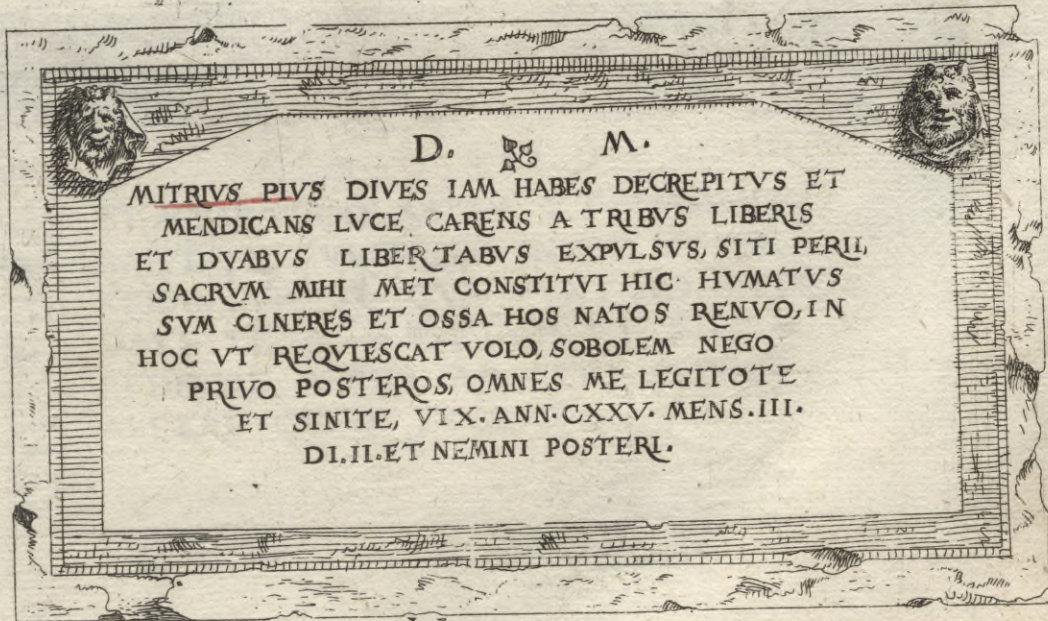 D. M.
MITRIVS PIVS DIVES IAM HABES DECREPITVS ET
MENDICANS LVCE CARENS A TRIBVS LIBERIS
ET DVABVS LIBERTABVS EXPVLSVS, SITI PERII,
SACRVM MIHI MET CONSTITVI HIC HVMATVS
SVM CINERES ET OSSA HOS NATOS RENVO, IN
HOC VT REQVIESCAT VOLO, SOBOLEM NEGO
PRIVO POSTEROS, OMNES ME LEGITOTE
ET SINITE, VIX. ANN. CXXV. MENS. III.
DI. II. ET NEMINI POSTERI.